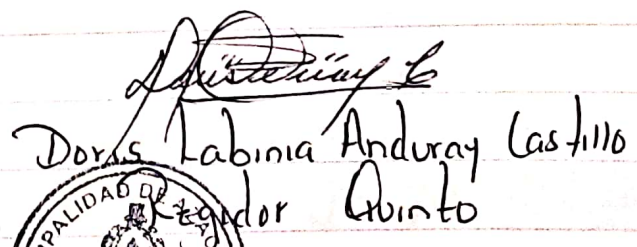 Doris Labinia Anduray Castillo
Regidor Quinto
PALIDAD DE